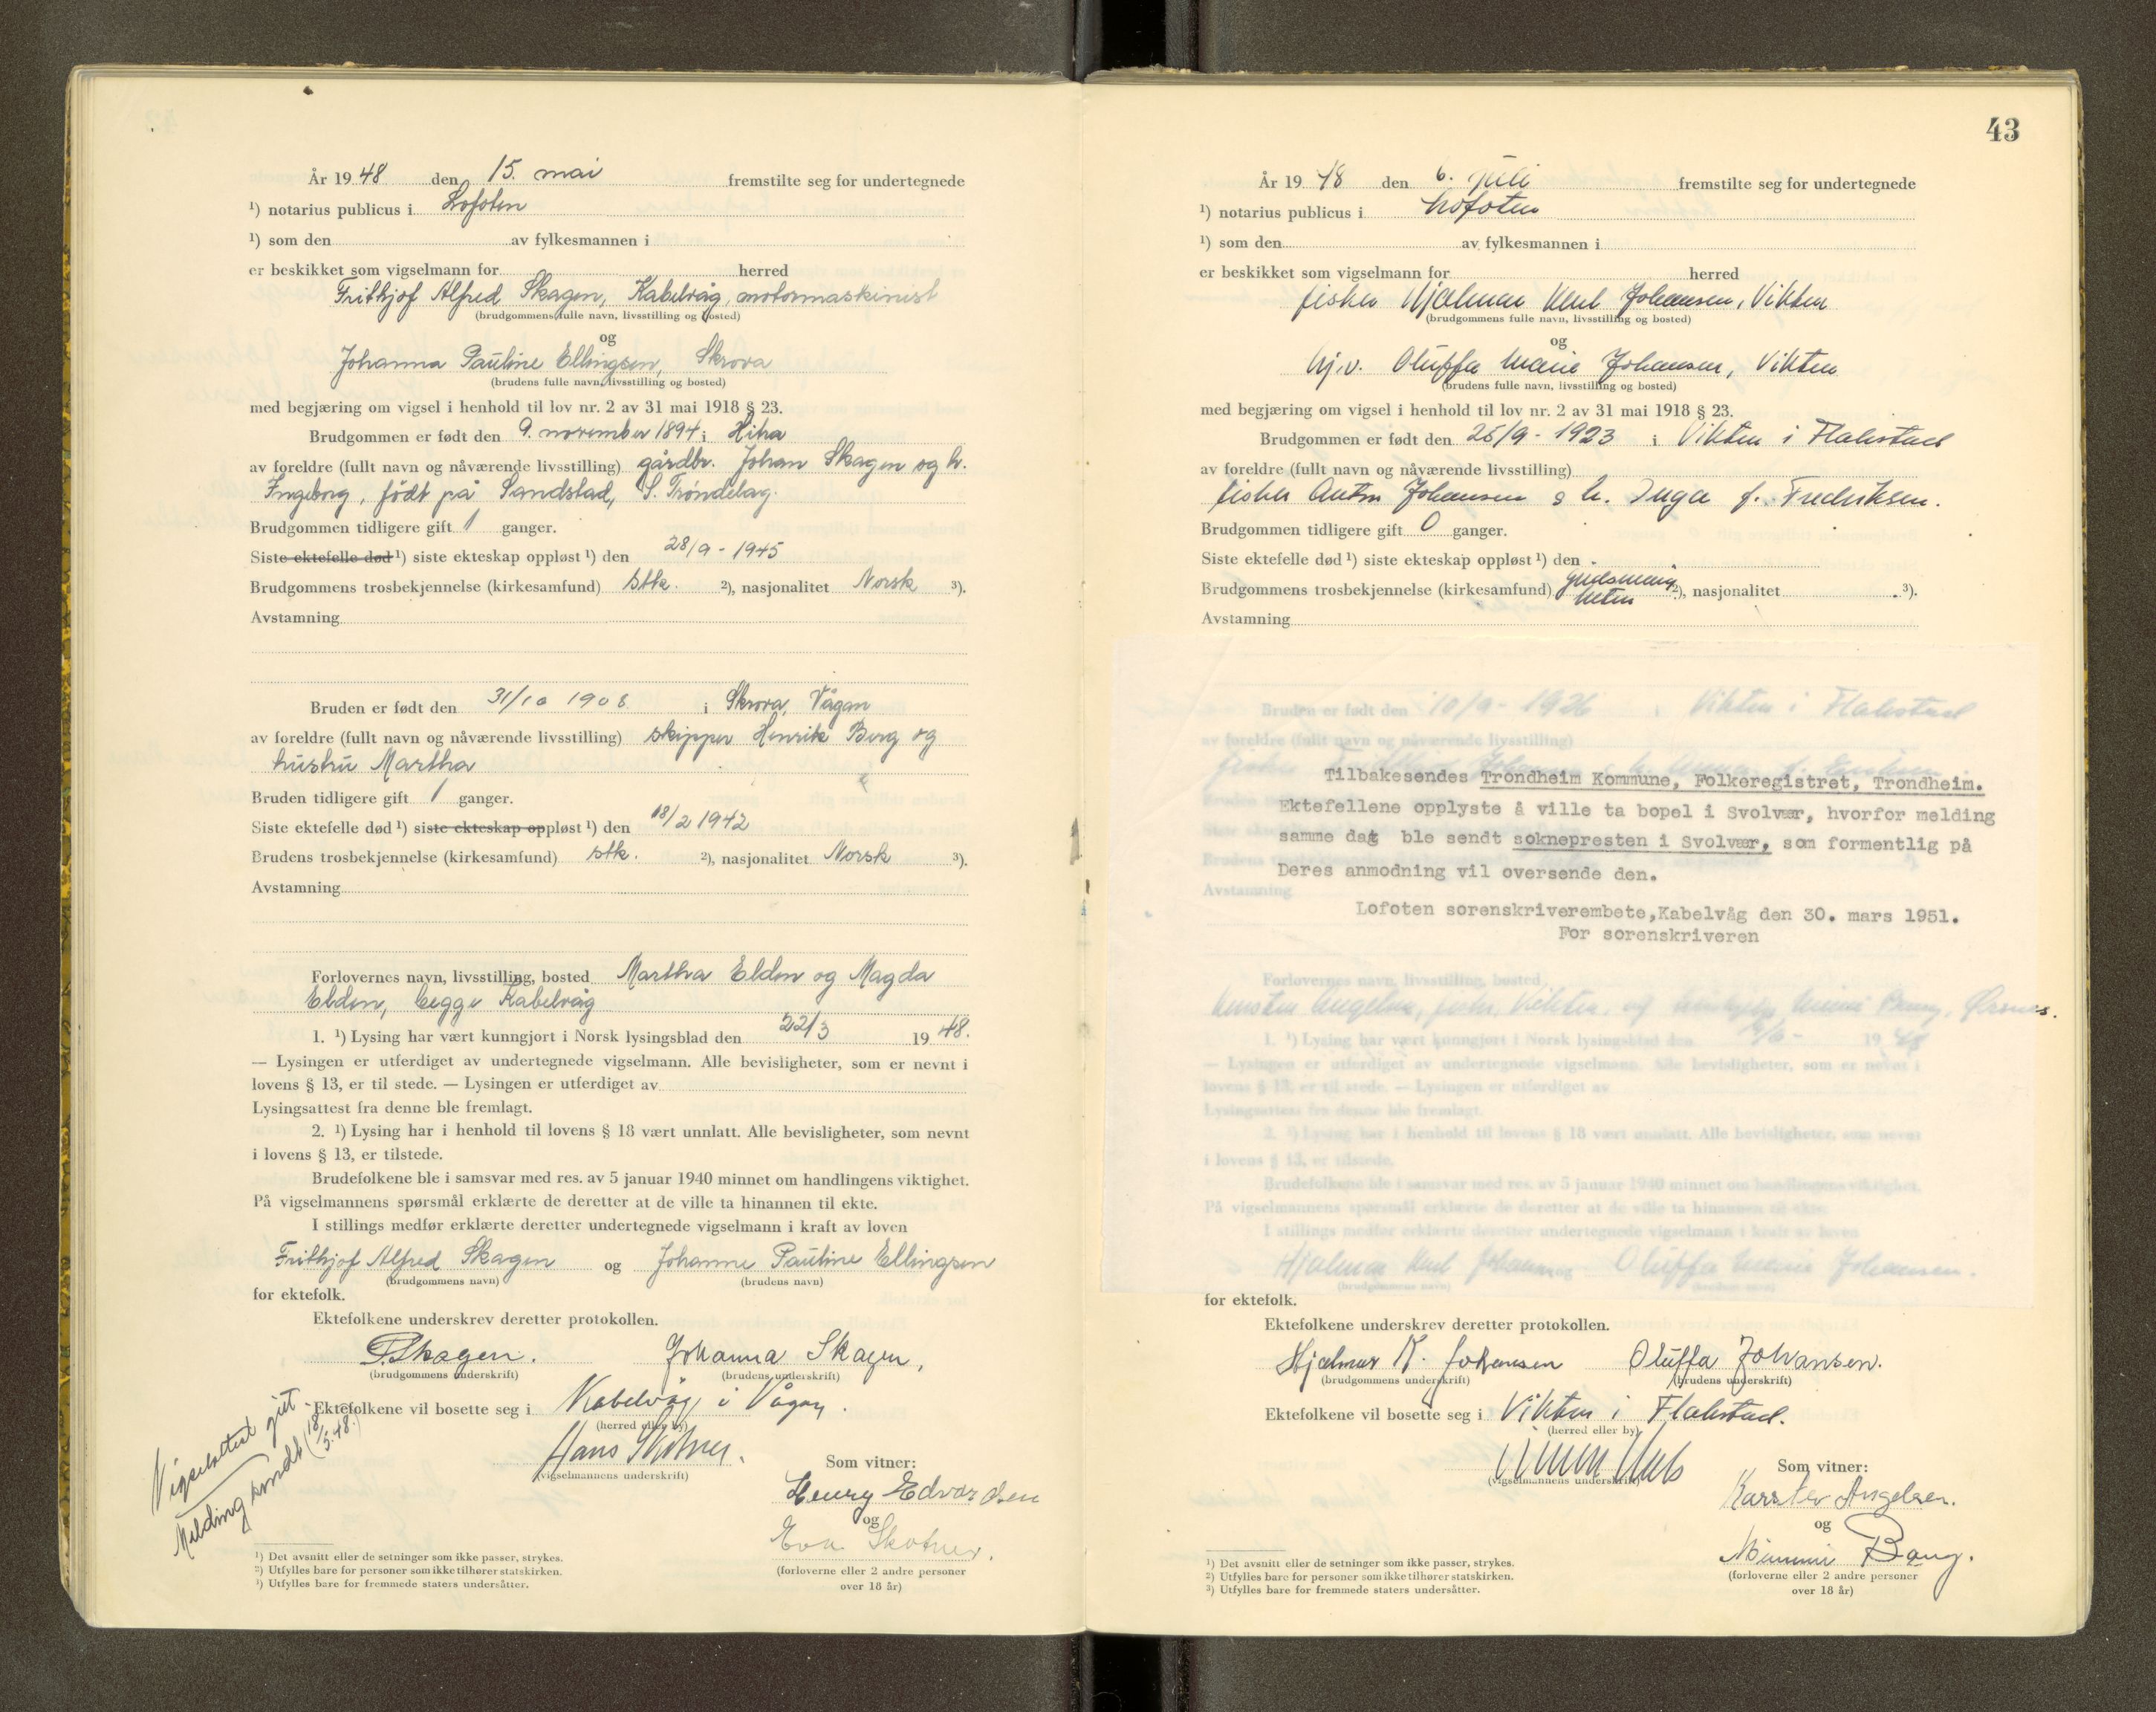 År 1948 den 15. mai fremstilte seg for undertegnede
¹) notarius publicus i Lofoten
¹) som den av fylkesmannen i
er beskikket som vigselmann for herred
Frithjof Alfred Skagen, Kabelvåg, motormaskinist
(brudgommens fulle navn, livsstilling og bosted)
og
Johanna Pauline Ellingsen, Skrova
(brudens fulle navn, livsstilling og bosted)
med begjæring om vigsel i henhold til lov nr. 2 av 31 mai 1918 § 23.
Brudgommen er født den 9. november 1894 i Hitra
av foreldre (fullt navn og nåværende livsstilling) gårdbr. Johan Skagen og h.
Ingeborg, født på Sandstad, S. Trøndelag.
Brudgommen tidligere gift 1 ganger.
Siste ektefelle død ¹) siste ekteskap oppløst ¹) den 28/9 - 1945
Brudgommens trosbekjennelse (kirkesamfund) stk. ²), nasjonalitet Norsk ³).
Avstamning
Bruden er født den 31/10 1908 i Skrova, Vågan
av foreldre (fullt navn og nåværende livsstilling) skipper Henrik Berg og
hustru Martha
Bruden tidligere gift 1 ganger.
Siste ektefelle død ¹) siste ekteskap oppløst ¹) den 18/2 1942
Brudens trosbekjennelse (kirkesamfund) stk. ²), nasjonalitet Norsk ³).
Avstamning
Forlovernes navn, livsstilling, bosted Martha Elden og Magda
Elden, begge Kabelvåg
1. ¹) Lysing har vært kunngjort i Norsk lysingsblad den 22/3 1948.
— Lysingen er utferdiget av undertegnede vigselmann. Alle bevisligheter, som er nevnt i
lovens § 13, er til stede. — Lysingen er utferdiget av
Lysingsattest fra denne ble fremlagt.
2. ¹) Lysing har i henhold til lovens § 18 vært unnlatt. Alle bevisligheter, som nevnt
i lovens § 13, er tilstede.
Brudefolkene ble i samsvar med res. av 5 januar 1940 minnet om handlingens viktighet.
På vigselmannens spørsmål erklærte de deretter at de ville ta hinannen til ekte.
I stillings medfør erklærte deretter undertegnede vigselmann i kraft av loven
Frithjof Alfred Skagen og Johanne Pauline Ellingsen
(brudgommens navn) (brudens navn)
for ektefolk.
Ektefolkene underskrev deretter protokollen.
F Skagen. Johanna Skagen,
(brudgommens underskrift) (brudens underskrift)
Ektefolkene vil bosette seg i Kabelvåg i Vågan.
(herred eller by)
Hans Skotner.
(vigselmannens underskrift)
Som vitner:
Henry Edvardsen
og
Eva Skotner.
(forloverne eller 2 andre personer
over 18 år)
Vigselattest gitt.
Melding sendt (18/5.48.)
¹) Det avsnitt eller de setninger som ikke passer, strykes.
²) Utfylles bare for personer som ikke tilhører statskirken.
³) Utfylles bare for fremmede staters undersåtter.
43
År 1948 den 6. juli fremstilte seg for undertegnede
¹) notarius publicus i Lofoten
¹) som den av fylkesmannen i
er beskikket som vigselmann for herred
fisker Hjalmar Karl Johansen, Vikten
(brudgommens fulle navn, livsstilling og bosted)
og
hj.v. Oluffa Marie Johansen, Vikten
(brudens fulle navn, livsstilling og bosted)
med begjæring om vigsel i henhold til lov nr. 2 av 31 mai 1918 § 23.
Brudgommen er født den 25/9 - 1923 i Vikten i Flakstad
av foreldre (fullt navn og nåværende livsstilling)
fisker Anton Johansen o h. Inga f. Fredriksen.
Brudgommen tidligere gift 0 ganger.
Siste ektefelle død ¹) siste ekteskap oppløst ¹) den
Brudgommens trosbekjennelse (kirkesamfund) ²), nasjonalitet ³).
Avstamning
Bruden er født den 10/9 - 1926 i Vikten i Flakstad
av foreldre (fullt navn og nåværende livsstilling)
Tilbakesendes Trondheim Kommune, Folkeregistret, Trondheim.
Ektefellene opplyste å ville ta bopel i Svolvær, hvorfor melding
samme dag ble sendt soknepresten i Svolvær, som formentlig på
Deres anmodning vil oversende den.
Avstamning
Lofoten sorenskriverembete, Kabelvåg den 30. mars 1951.
For sorenskriveren
Forlovernes navn, livsstilling, bosted
1. ¹) Lysing har vært kunngjort i Norsk lysingsblad den 1948
— Lysingen er utferdiget av undertegnede vigselmann. Alle bevisligheter, som er nevnt i
lovens § 13, er til stede. — Lysingen er utferdiget av
Lysingsattest fra denne ble fremlagt.
2. ¹) Lysing har i henhold til lovens § 18 vært unnlatt. Alle bevisligheter, som nevnt
i lovens § 13, er tilstede.
Brudefolkene ble i samsvar med res. av 5 januar 1940 minnet om handlingens viktighet.
På vigselmannens spørsmål erklærte de deretter at de ville ta hinannen til ekte.
I stillings medfør erklærte deretter undertegnede vigselmann i kraft av loven
Hjalmar Karl Johansen og Oluffa Marie Johansen.
(brudgommens navn) (brudens navn)
for ektefolk.
Ektefolkene underskrev deretter protokollen.
Hjalmar K. Johansen Oluffa Johansen.
(brudgommens underskrift) (brudens underskrift)
Ektefolkene vil bosette seg i Vikten i Flakstad.
(herred eller by)
(vigselmannens underskrift)
Som vitner:
Karsten Angelsen.
og
Mimmi Bang.
(forloverne eller 2 andre personer
over 18 år)
¹) Det avsnitt eller de setninger som ikke passer, strykes.
²) Utfylles bare for personer som ikke tilhører statskirken.
³) Utfylles bare for fremmede staters undersåtter.